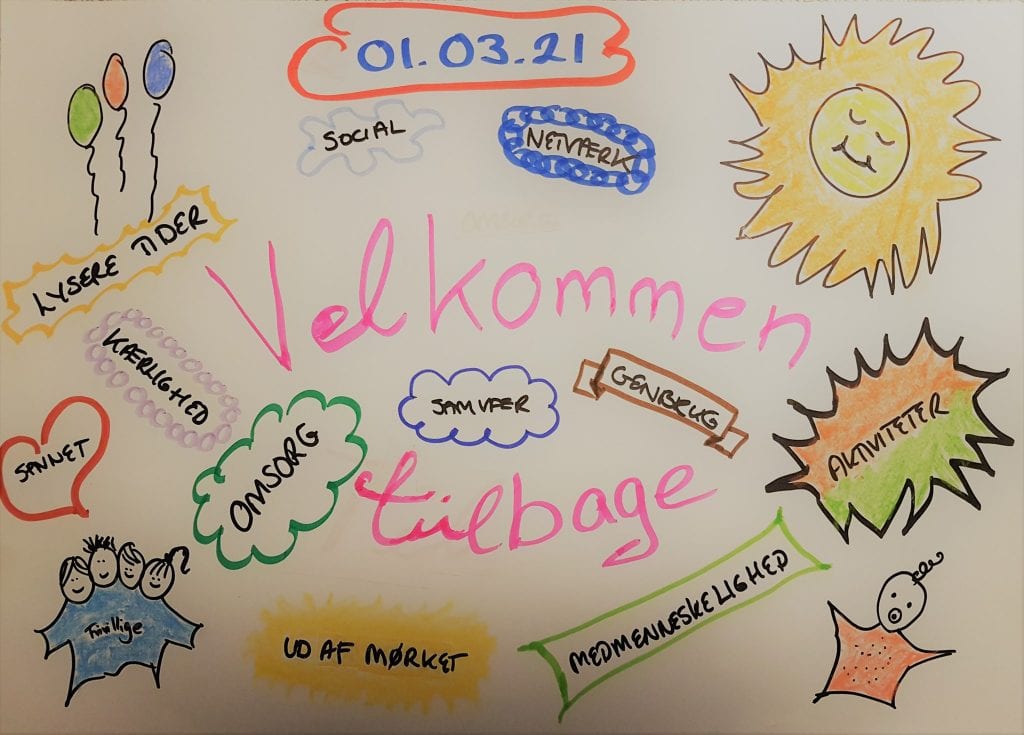 01.03.21
SOCIAL
NETVÆRK
LYSERE TIDER
Velkommen
KÆRLIGHED
SAMVÆR
GENBRUG
AKTIVITETER
SAVNET
OMSORG
tilbage
Frivillige
UD AF MØRKET
MEDMENNESKELIGHED